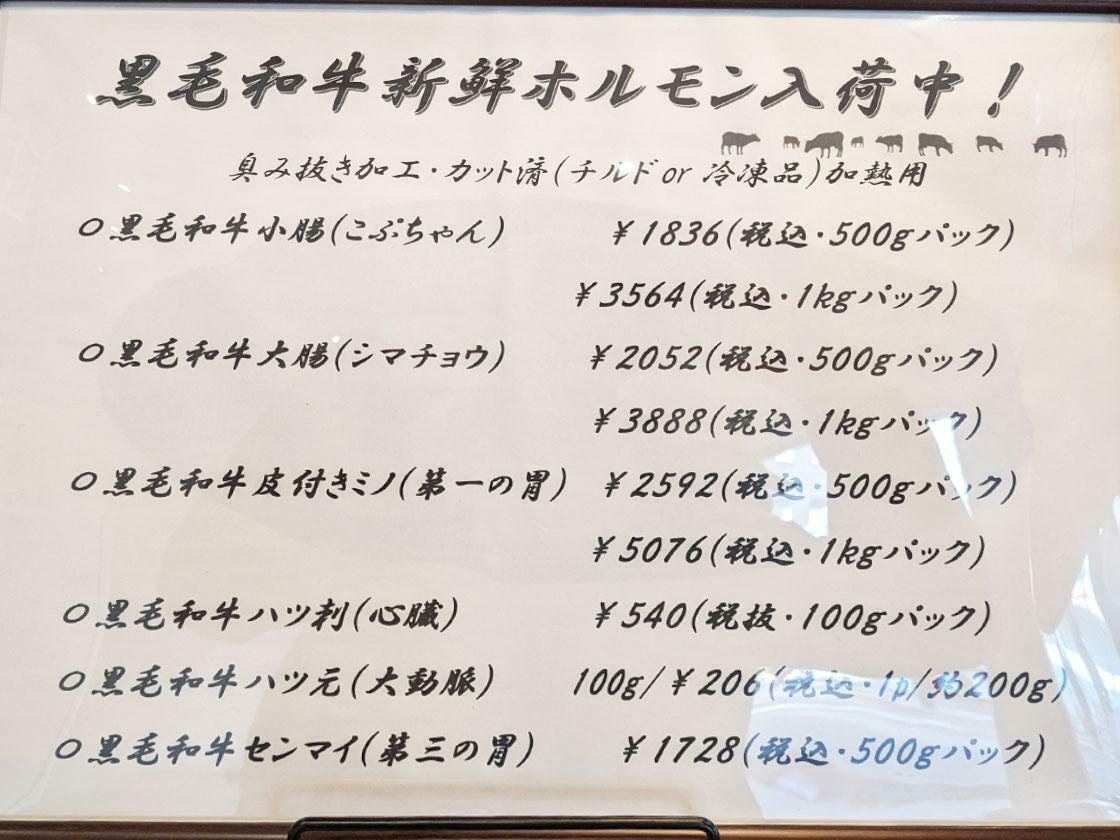 黒毛和牛新鮮ホルモン入荷中！
臭み抜き加工・カット済(チルド or 冷凍品)加熱用
○黒毛和牛小腸(こぷちゃん) ¥1836(税込・500gパック)
¥3564(税込・1kgパック)
○黒毛和牛大腸(シマチョウ) ¥2052(税込・500gパック)
¥3888(税込・1kgパック)
○黒毛和牛皮付きミノ(第一の胃) ¥2592(税込・500gパック)
¥5076(税込・1kgパック)
○黒毛和牛ハツ刺(心臓) ¥540(税抜・100gパック)
○黒毛和牛ハツ元(大動脈) 100g/¥206(税込・1p/約200g)
○黒毛和牛センマイ(第三の胃) ¥1728(税込・500gパック)